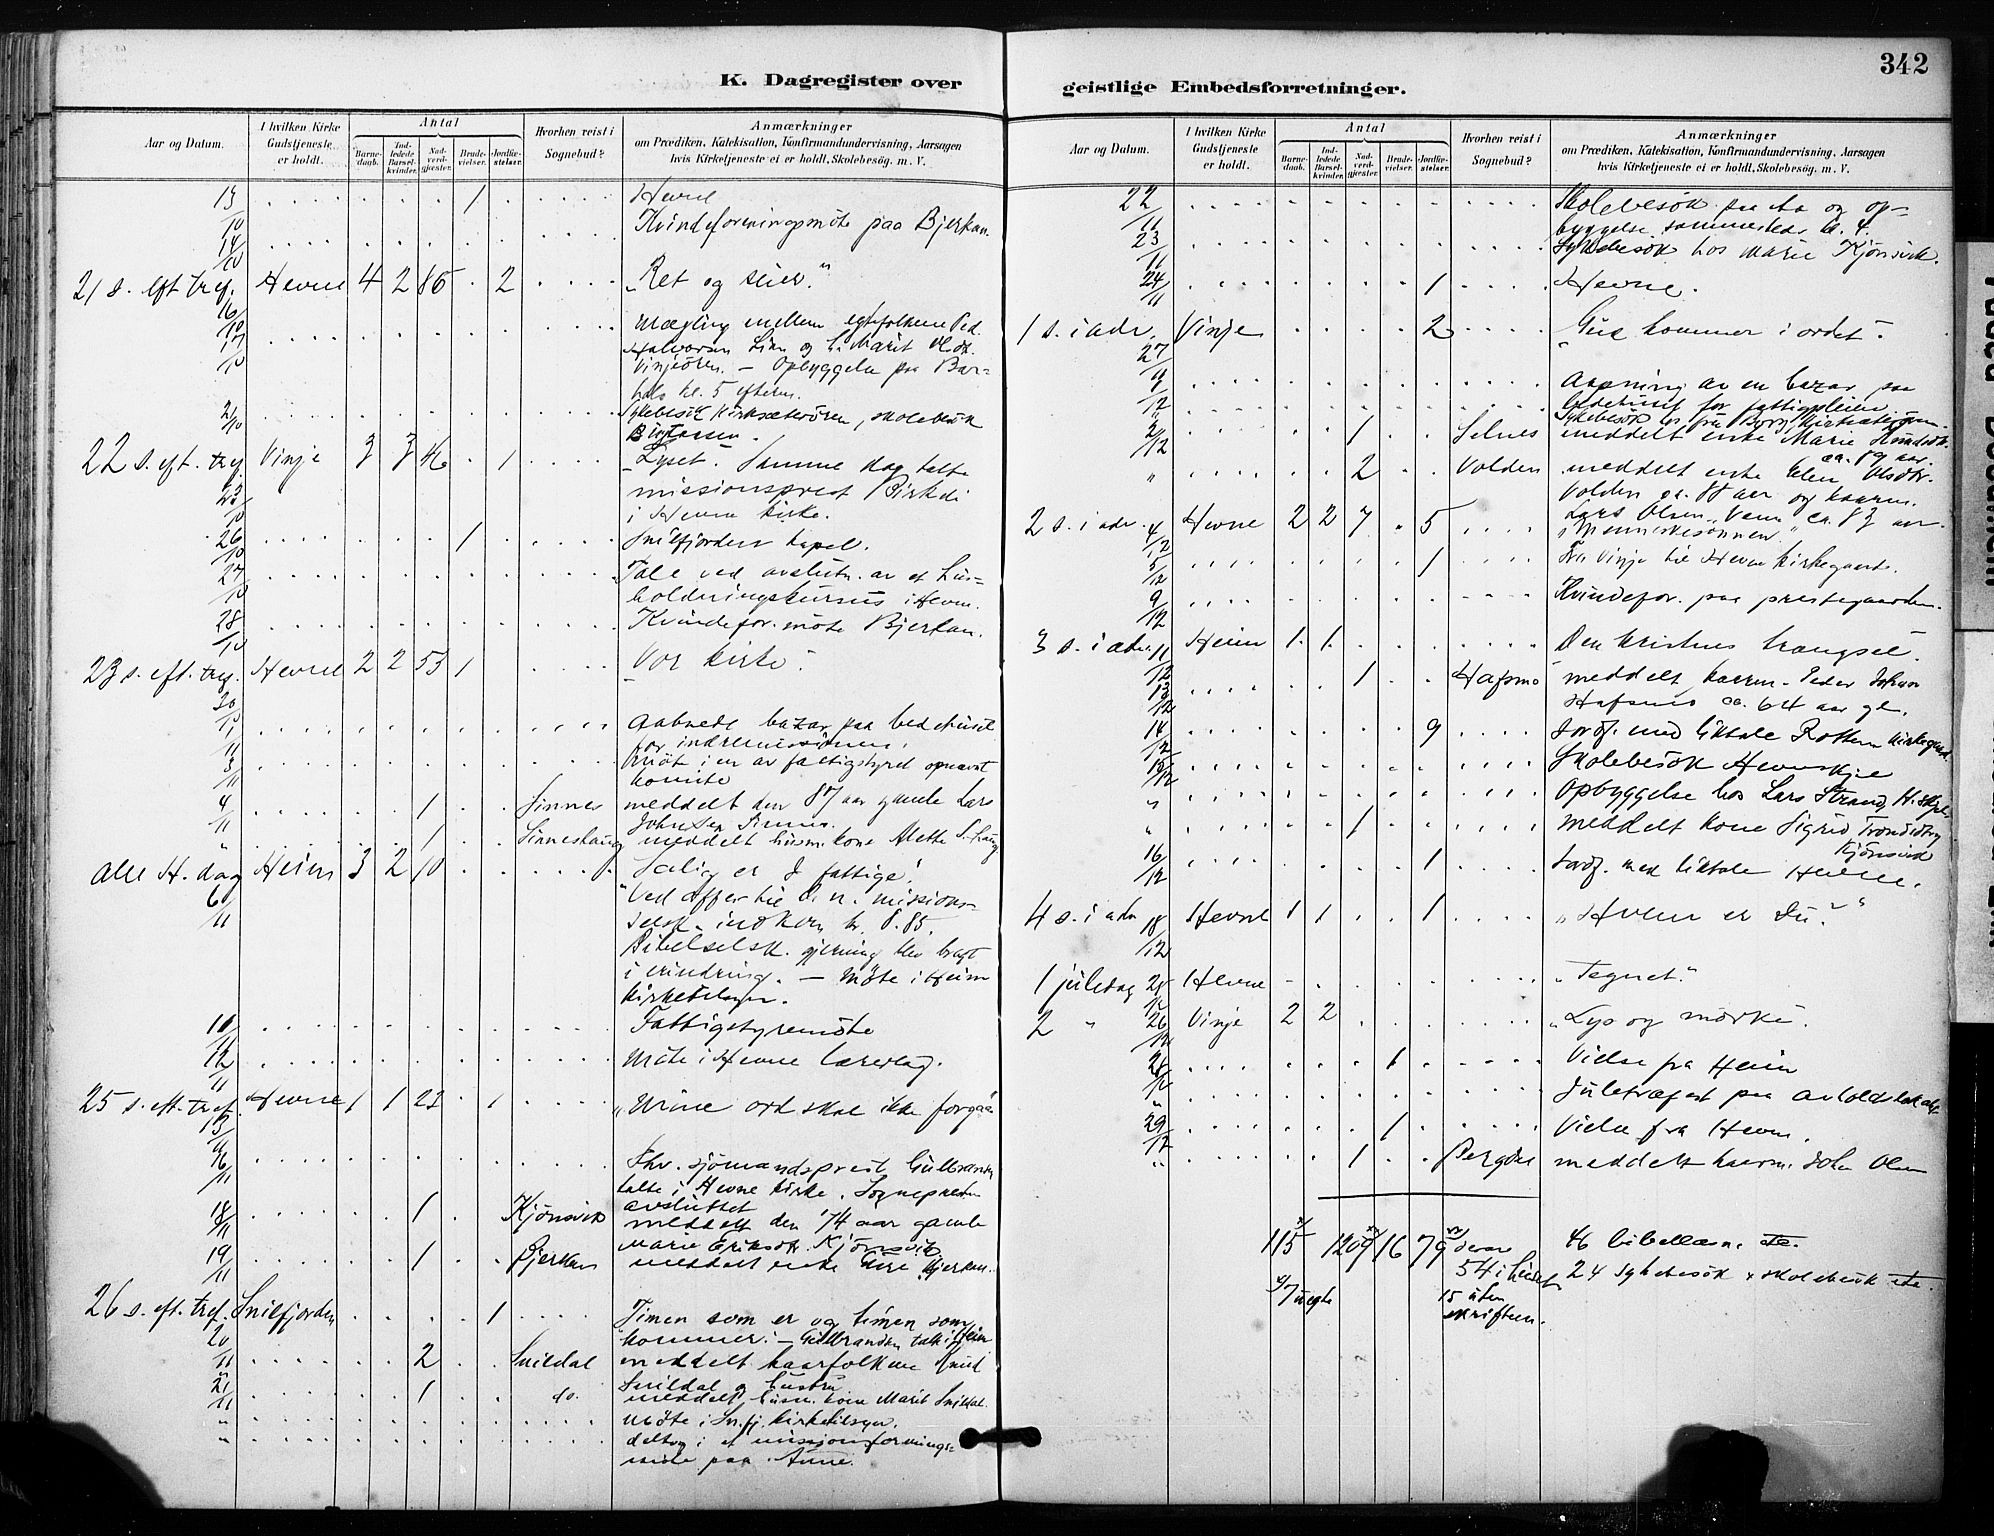 342
K. Dagregister over
geistlige Embedsforretninger.
Aar og Datum.
I hvilken Kirke Gudstjeneste er holdt.
Antal
Barnedaab.
Indledede Barselkvinder.
Nadverdgjæster.
Brudevielser.
Jordfæstelser.
Hvorhen reist i Sognebud?
Anmærkninger
om Prædiken, Katekisation, Konfirmandundervisning, Aarsagen
hvis Kirketjeneste ei er holdt, Skolebesøg. m. V.
13/10 1 Hevne
14/10 Kvindeforeningsmöte paa Bjerkan.
21 s. eft tref. 16/10 Hevne 4 2 86 2 "Ret og seier."
17/10 Mægling mellem egtefolkene Ped.
Halvorsen Lian og h. Marit Olsdt.
Vinjeören. – Opbyggelse paa
kl. 5 efterm.
21/10 Sykebesök Kirksæterören, skolebesök
22 s. eft. tref. 23/10 Vinje 3 3 46 1 "Lyset". Samme dag talte
missionsprest Birkeli
i Hevne kirke.
26/10 1 Snilfjorden kapel.
27/10 Tale ved avslutn. av et hus=
holdningskursus i Hevne.
28/10 Kvindefor. möte Bjerkan.
23 s. eft. tref. 30/10 Hevne 2 2 53 1 "Vor kirke".
1/11 Aabnede bazar paa bedehuset
for indremissionen.
3/11 Möt i en av fattigstyret opnævnt
komite
4/11 1 Sinnes meddelt den 87 aar gamle Lars
Johnsen Sinnes.
1 Sinneshaug meddelt husm. kone Alette S.haug
alle H. dag 6/11 Heim 3 2 10 "Salig er I fattige".
Ved offer til d. n. missions=
selsk. indkom kr. 8.85.
Bibelselsk. gjerning blev bragt
i erindring. – Möte i Heim
kirketilsyn.
10/11 Fattigstyremöte
12/11 Möte i Hevne lærerlag.
25 s. eft. tref. 13/11 Hevne 1 1 23 1 "Mine ord skal ikke forgaa"
16/11 Fhv. sjömandsprest Gulbrandsen
talte i Hevne kirke. Sognepresten
avsluttet
18/11 1 Kjönsvik meddelt den 74 aar gamle
Marie Eriksdt. Kjönsvik
19/11 1 Bjerkan meddelt enke Bjerkan.
26 s. eft. tref. 20/11 Snilfjorden 1 Timen som er og timen som
kommer". – Gulbrandsen talte i Heim
2 Snildal meddelt kaarfolkene Knud
Snildal og hustru
21/11 1 do. meddelt husm. kone Marit Snildal.
" Möte i Sn.fj. kirketilsyn.
" deltog i et missionsforenings=
möte paa
22/11 Skolebesök paa Aa og op=
byggelse sammesteds kl. 4.
23/11 Sykebesök hos Marie Kjönsvik.
24/11 1 Hevne.
1 s. i adv. 27/11 Vinje 2 "Gud kommer i ordet".
1/12 Aapning av en bazar paa
bedehuset for fattigpleien
" Sykebesök hos fru Borg, Kirksæterören.
2/12 1 Selnes meddelt enke Marie
ca. 89 aar.
" 2 Volden meddelt enke Elen Olsdtr.
Volden ca. 88 aar og kaarm.
Lars Olsen Vem ca. 83 aar.
2 s. i adv. 4/12 Hevne 2 2 7 5 "Menneskesönnen"
5/12 1 Fra Vinje til Hevne kirkegaard.
9/12 Kvindefor. paa prestegaarden.
3 s. i adv. 11/12 Heim 1 1 Den kristnes trængsel".
13/12 1 Hafsmo meddelt kaarm. Peder Johan
Hafsmo ca. 64 aar gl.
14/12 9 Jordf. med liktale Rottem kirkegaard.
15/12 Skolebesök Hevnskjel
" Opbyggelse hos Lars Strand, H.skjel.
" 1 meddelt kone Sigrid Trondsdtr.
Kjönsvik
16/12 1 Jordf. med liktale Hevne.
4 s. i adv. 18/12 Hevne 1 1 1 "Hvem er Du?"
1 juledag 25/12 Hevne "Tegnet."
2 " 26/12 Vinje 2 2 "Lys og mörke".
28/12 1 Vielse fra Heim
" Juletræfest paa avholdslokalet
29/12 1 Vielse fra Hevne.
" 1 Bergdal meddelt kaarm. John Olsen
115 1209 16 79 derav 46 bibellæsn.
54 i huset 24 sykebesök + skolebesök
7 uegte
15 uten
skriften.